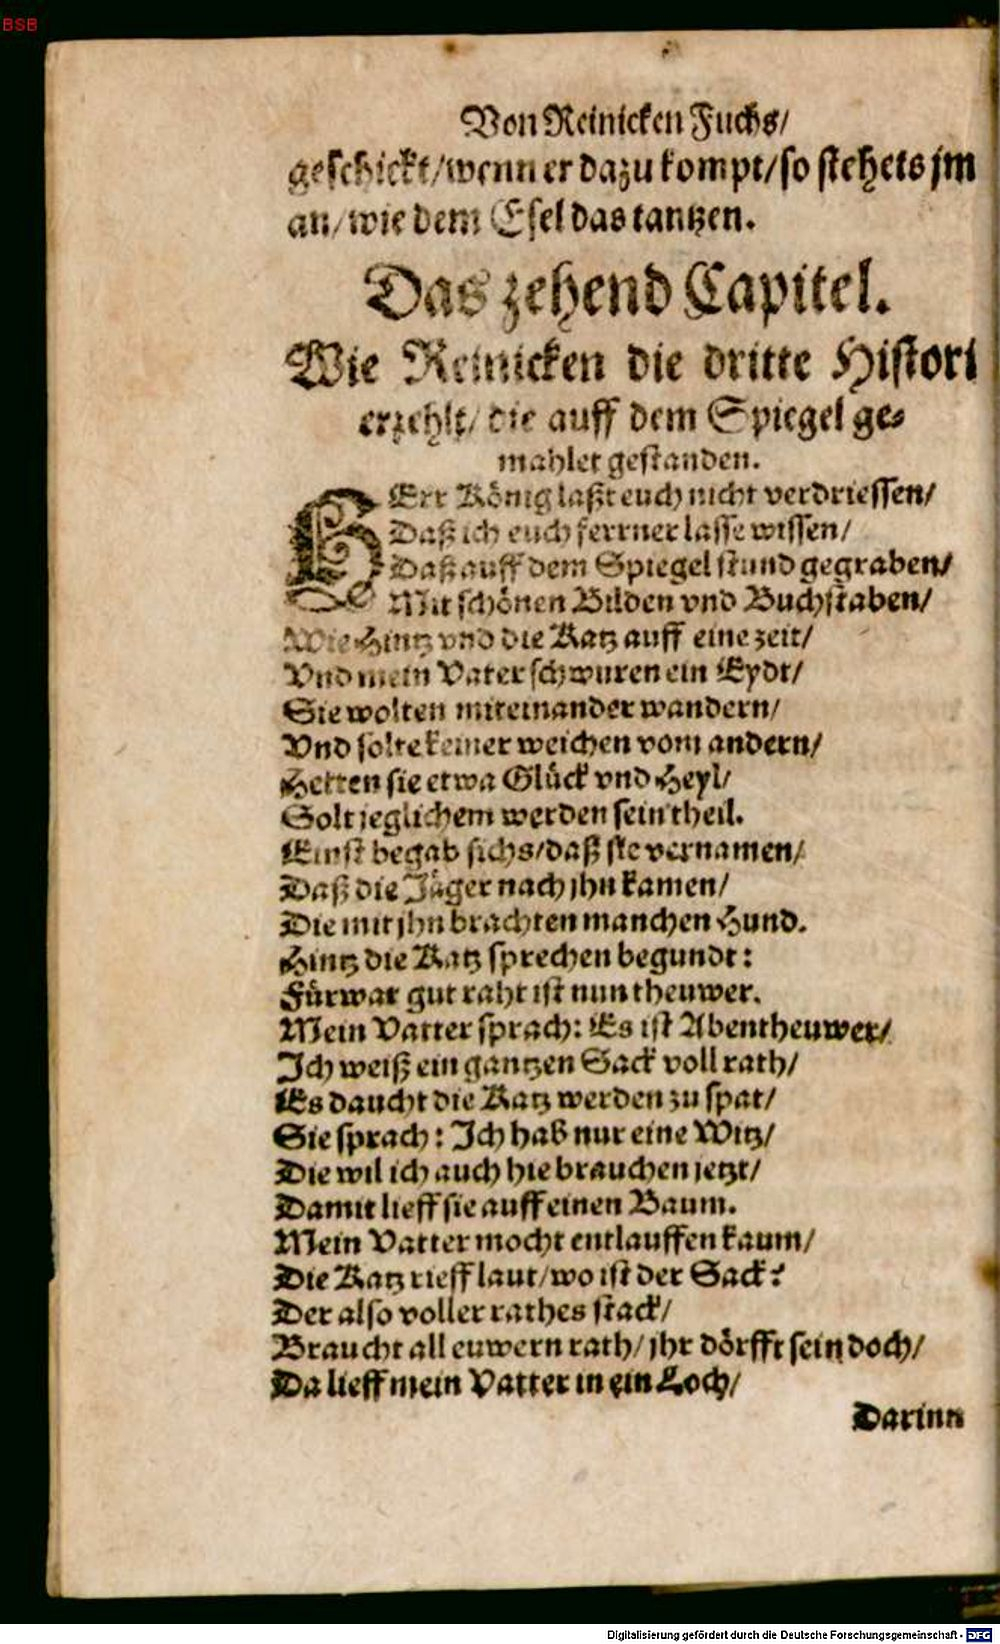 BSB
Von Reinicken Fuchs/
geschickt/wenn er dazu kompt/so stehets jm
an/wie dem Esel das tantzen.
Das zehend Capitel.
Wie Reinicken die dritte Histori
erzehlt/ die auff dem Spiegel ge⸗
mahlet gestanden.
HErr König laßt euch nicht verdriessen/
Daß ich euch ferrner lasse wissen/
Daß auff dem Spiegel stund gegraben/
Mit schönen Bilden vnd Buchstaben/
Wie Hintz vnd die Katz auff eine zeit/
Vnd mein Vater schwuren ein Eydt/
Sie wolten miteinander wandern/
Vnd solte keiner weichen vom andern/
Hetten sie etwa Glück vnd Heyl/
Solt jeglichem werden sein theil.
Einst begab sichs/daß sie vernamen/
Daß die Jäger nach jhn kamen/
Die mit jhn brachten manchen Hund.
Hintz die Katz sprechen begundt:
Fürwar gut raht ist nun theuwer.
Mein Vatter sprach: Es ist Abentheuwer/
Ich weiß ein gantzen Sack voll rath/
Es daucht die Katz werden zu spat/
Sie sprach: Ich hab nur eine Witz/
Die wil ich auch hie brauchen jetzt/
Damit lieff sie auff einen Baum.
Mein Vatter mocht entlauffen kaum/
Die Katz rieff laut/wo ist der Sack?
Der also voller rathes stack/
Braucht all euwern rath/jhr dörfft sein doch/
Da lieff mein Vatter in ein Loch/
Darinn
Digitalisierung gefördert durch die Deutsche Forschungsgemeinschaft - DFG